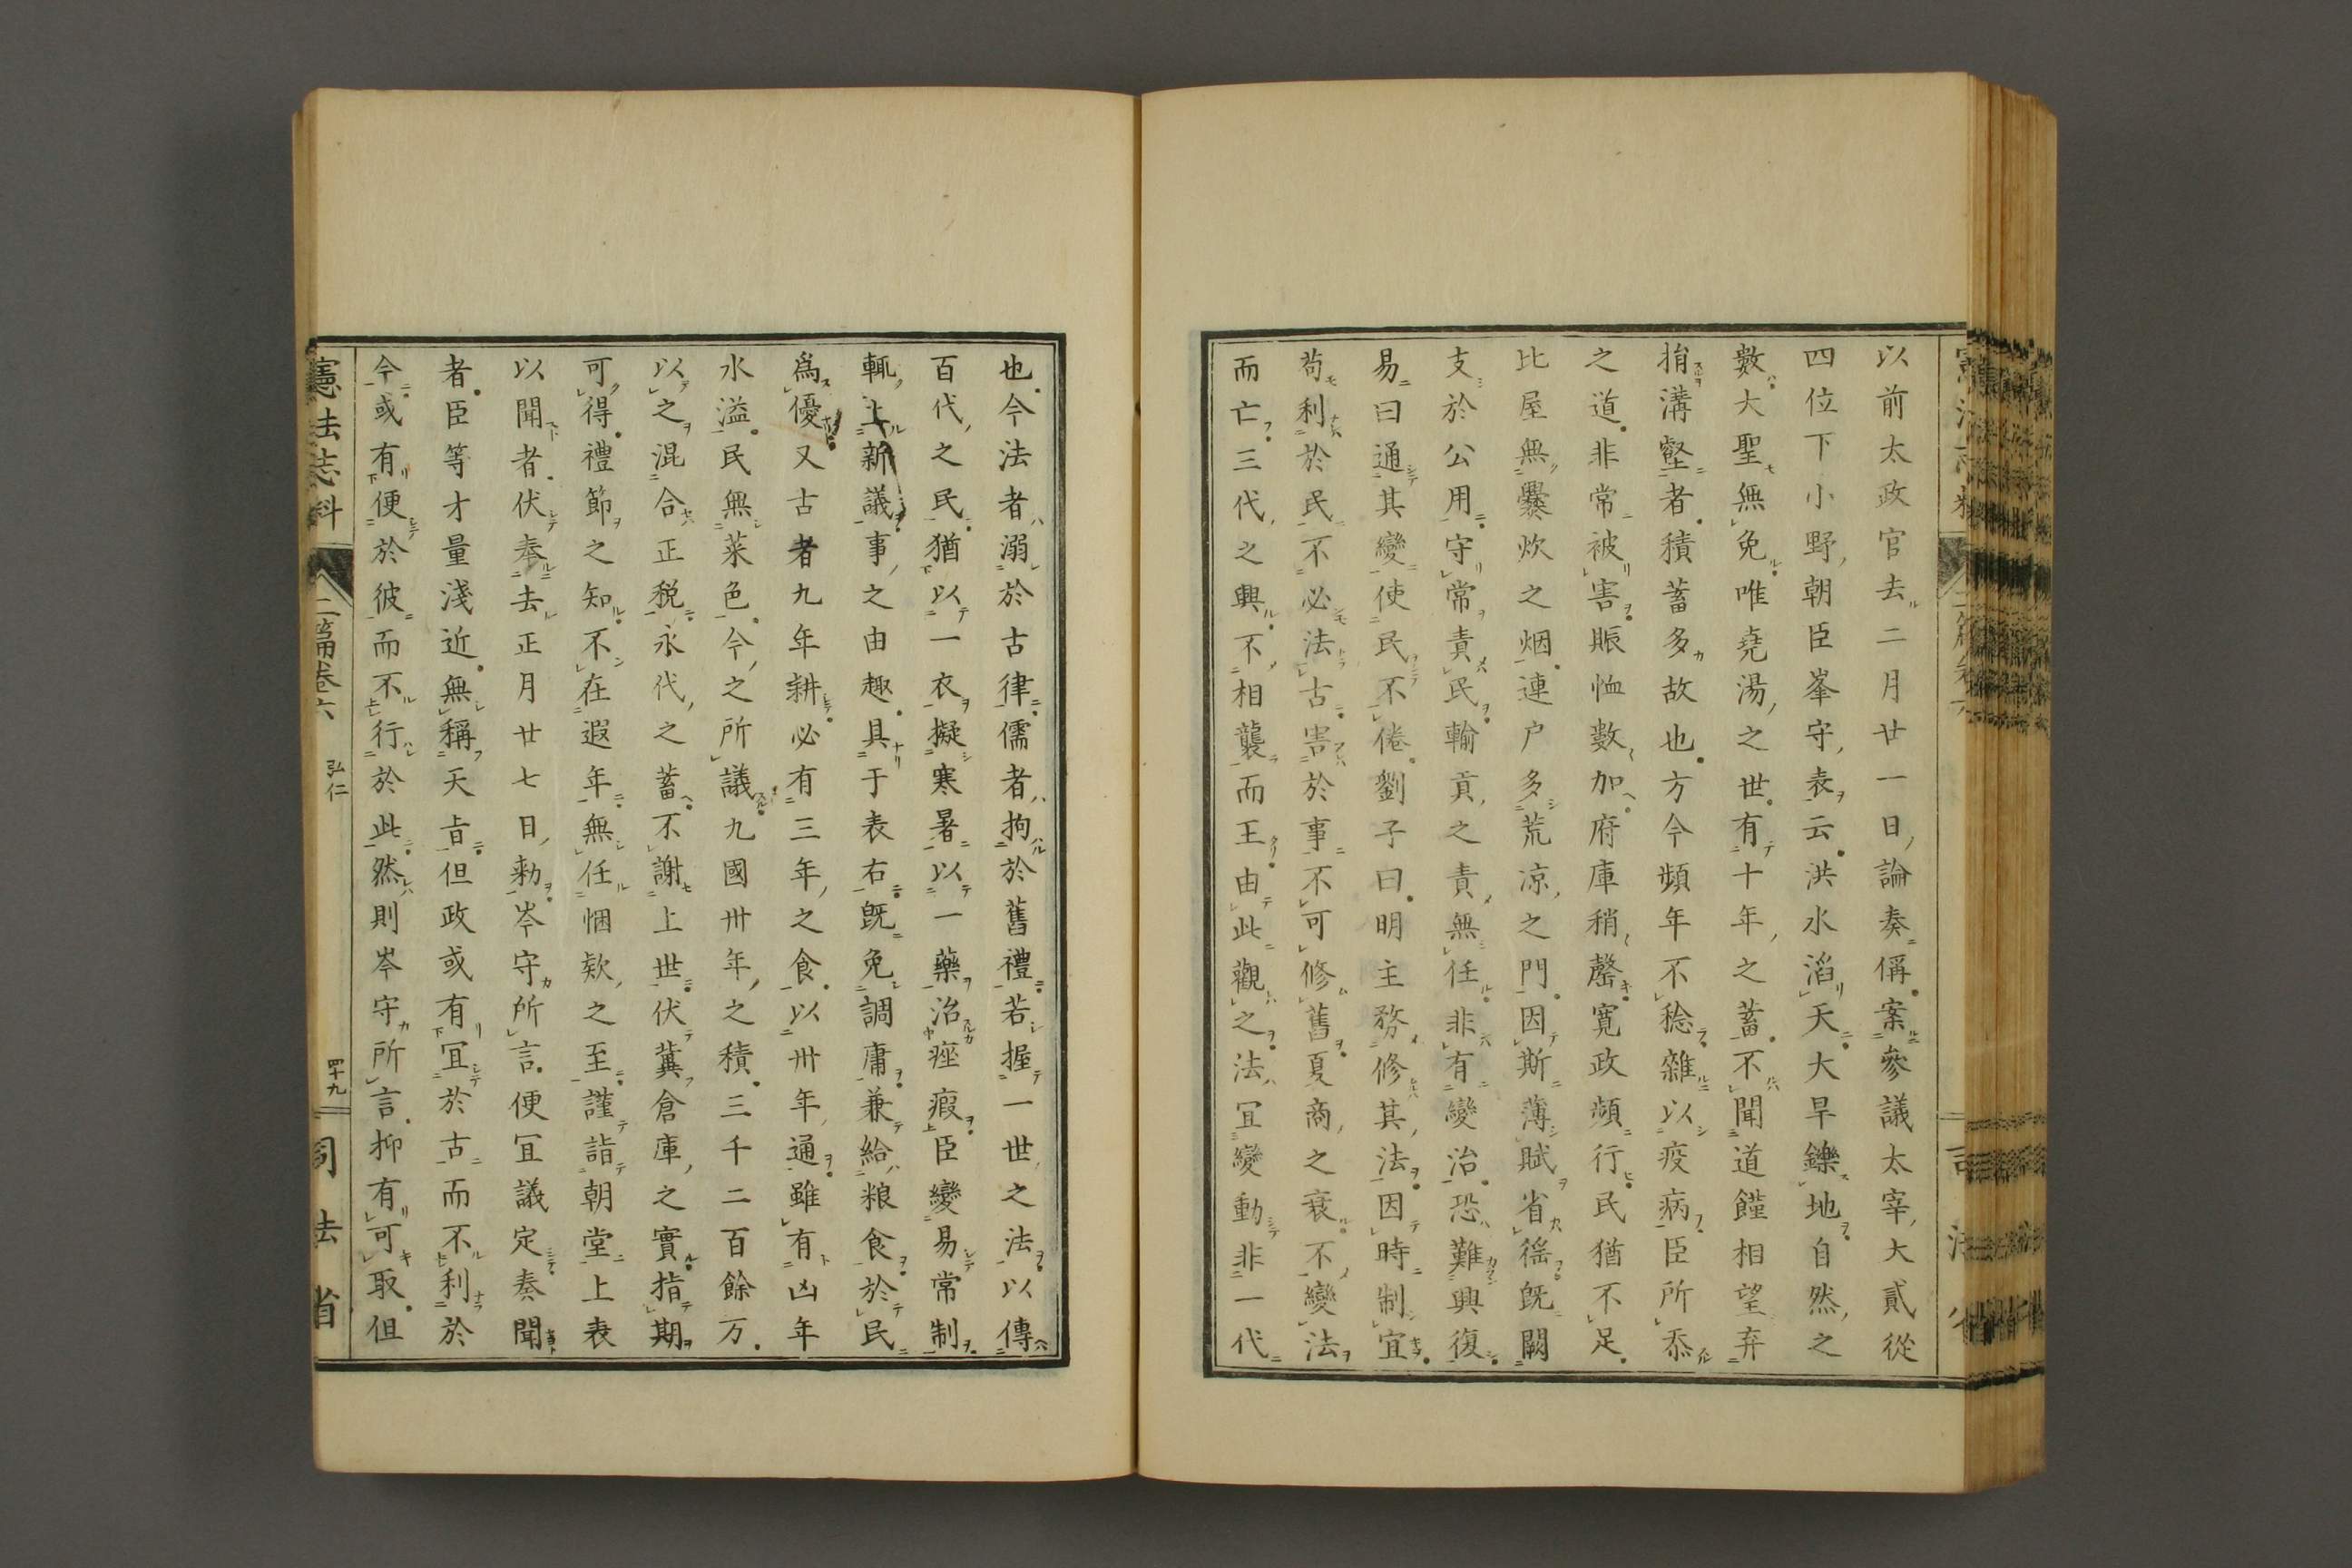 以前太政官去二月廿一日論奏偁案參議太宰大貳從
四位下小野朝臣峯守表云洪水滔天大旱鑠地自然之
數大聖無免唯堯湯之世有十年之蓄不聞道饉相望弃
捐溝壑者積蓄多故也方今頻年不稔雜以疫病臣所忝
之道非常被害賑恤數加府庫稍罄寬政頻行民猶不足
比屋無爨炊之烟連户多荒凉之門因斯薄賦省徭既闕
支於公用守常責民輸貢之責無任非有變治恐難興復
易曰通其變使民不倦劉子曰明主務修其法因時制宜
苟利於民不必法古害於事不可修舊夏商之衰不變法
而亡三代之興不相襲而王由此觀之法冝變動非一代
也今法者溺於古律儒者拘於舊禮若握一世之法以傳
百代之民猶以一衣擬寒暑以一藥治痤瘕臣變易常制
輙上新議事之由趣具于表右既免調庸兼給粮食於民
爲優又古者九年耕必有三年之食以卅年通雖有凶年
水溢民無菜色今之所議九國卅年之積三千二百餘万
以之混合正税永代之蓄不謝上世伏冀倉庫之實指期
可得禮節之知不在遐年無任悃欵之至謹詣朝堂上表
以聞者伏奉去正月廿七日勅岑守所言便冝議定奏聞
者臣等才量淺近無稱天旨但政或有冝於古而不利於
今或有便於彼而不行於此然則岑守所言抑有可取但
憲法志料 二篇卷六 弘仁 四十九 司法省